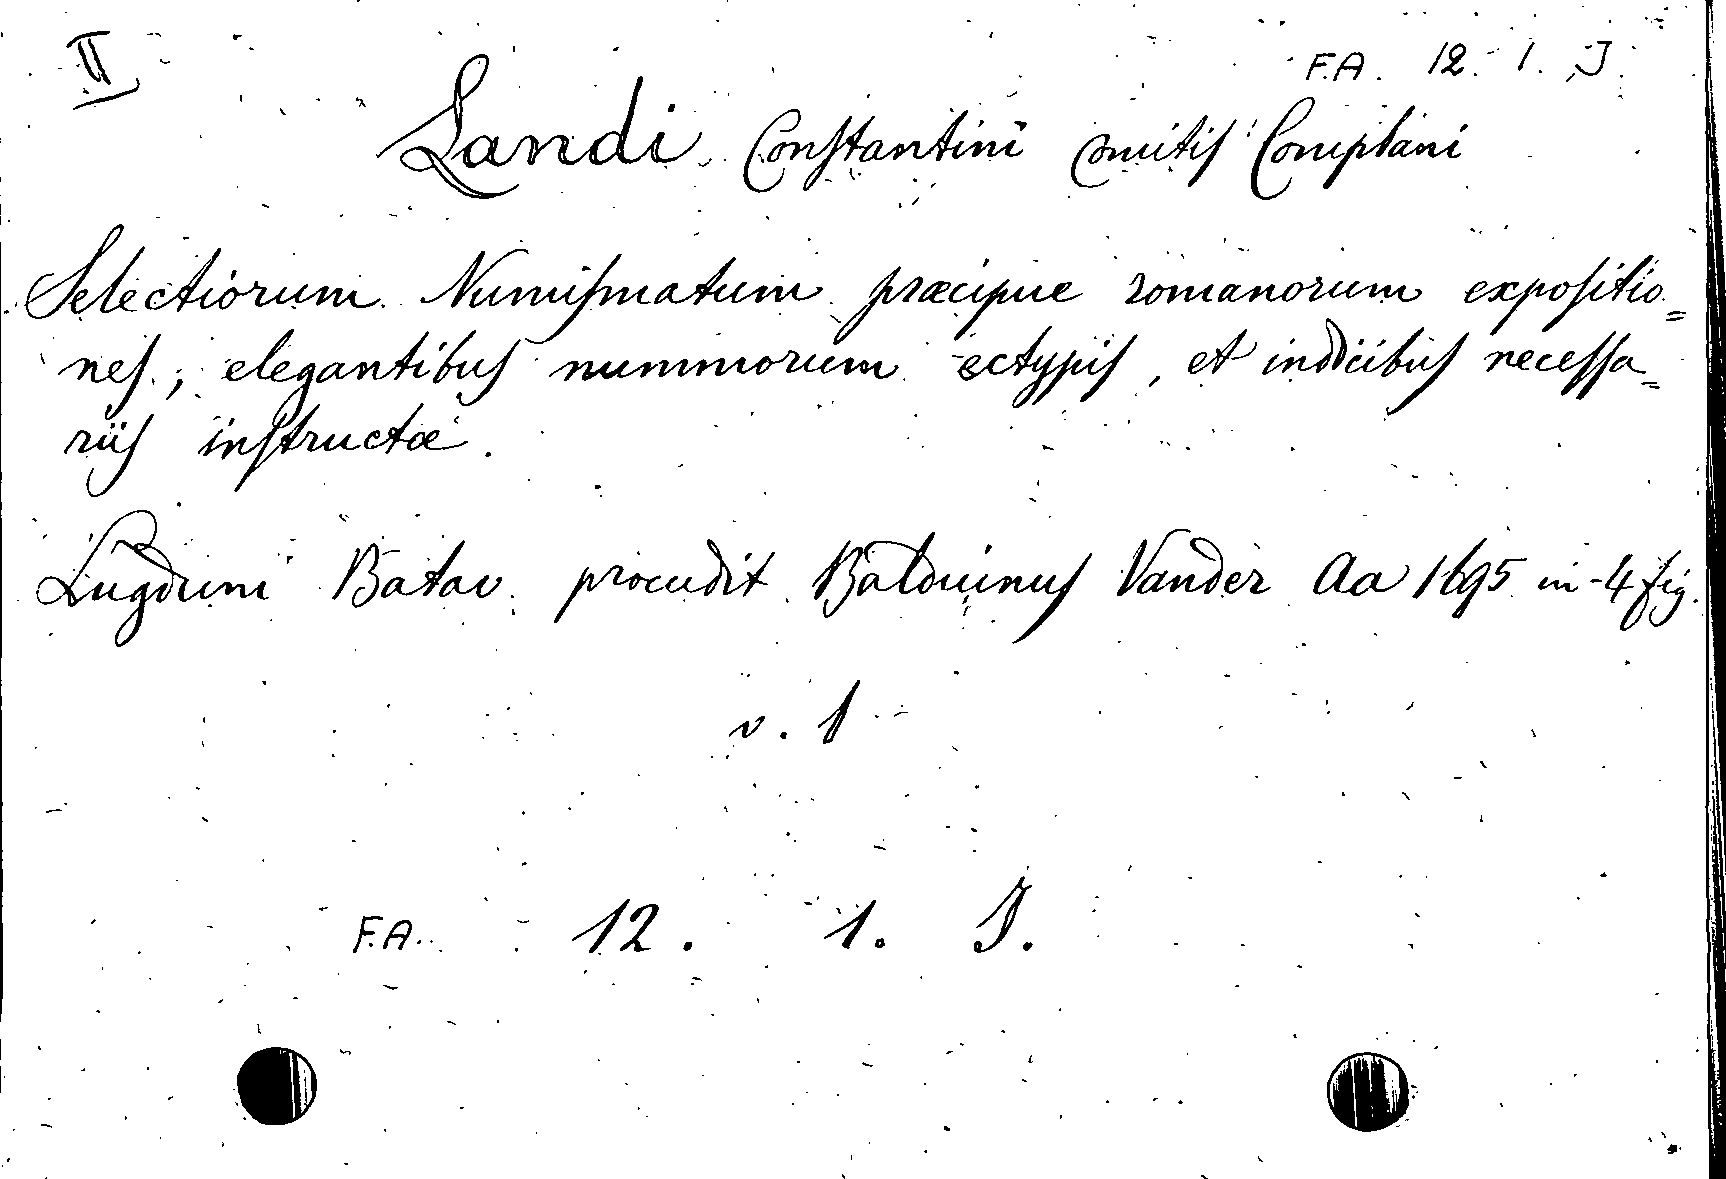 II
F.A. 12. 1. J.
Landi Constantini comitis Complani
Selectiorum Numismatum præcipue romanorum expositio=
nes, elegantibus nummorum ectypis, et indicibus necessa=
riis instructæ.
Lugduni Batav. procudit Balduinus Vander Aa 1695 in-4 fig.
v. 1
F.A. 12. 1. J.